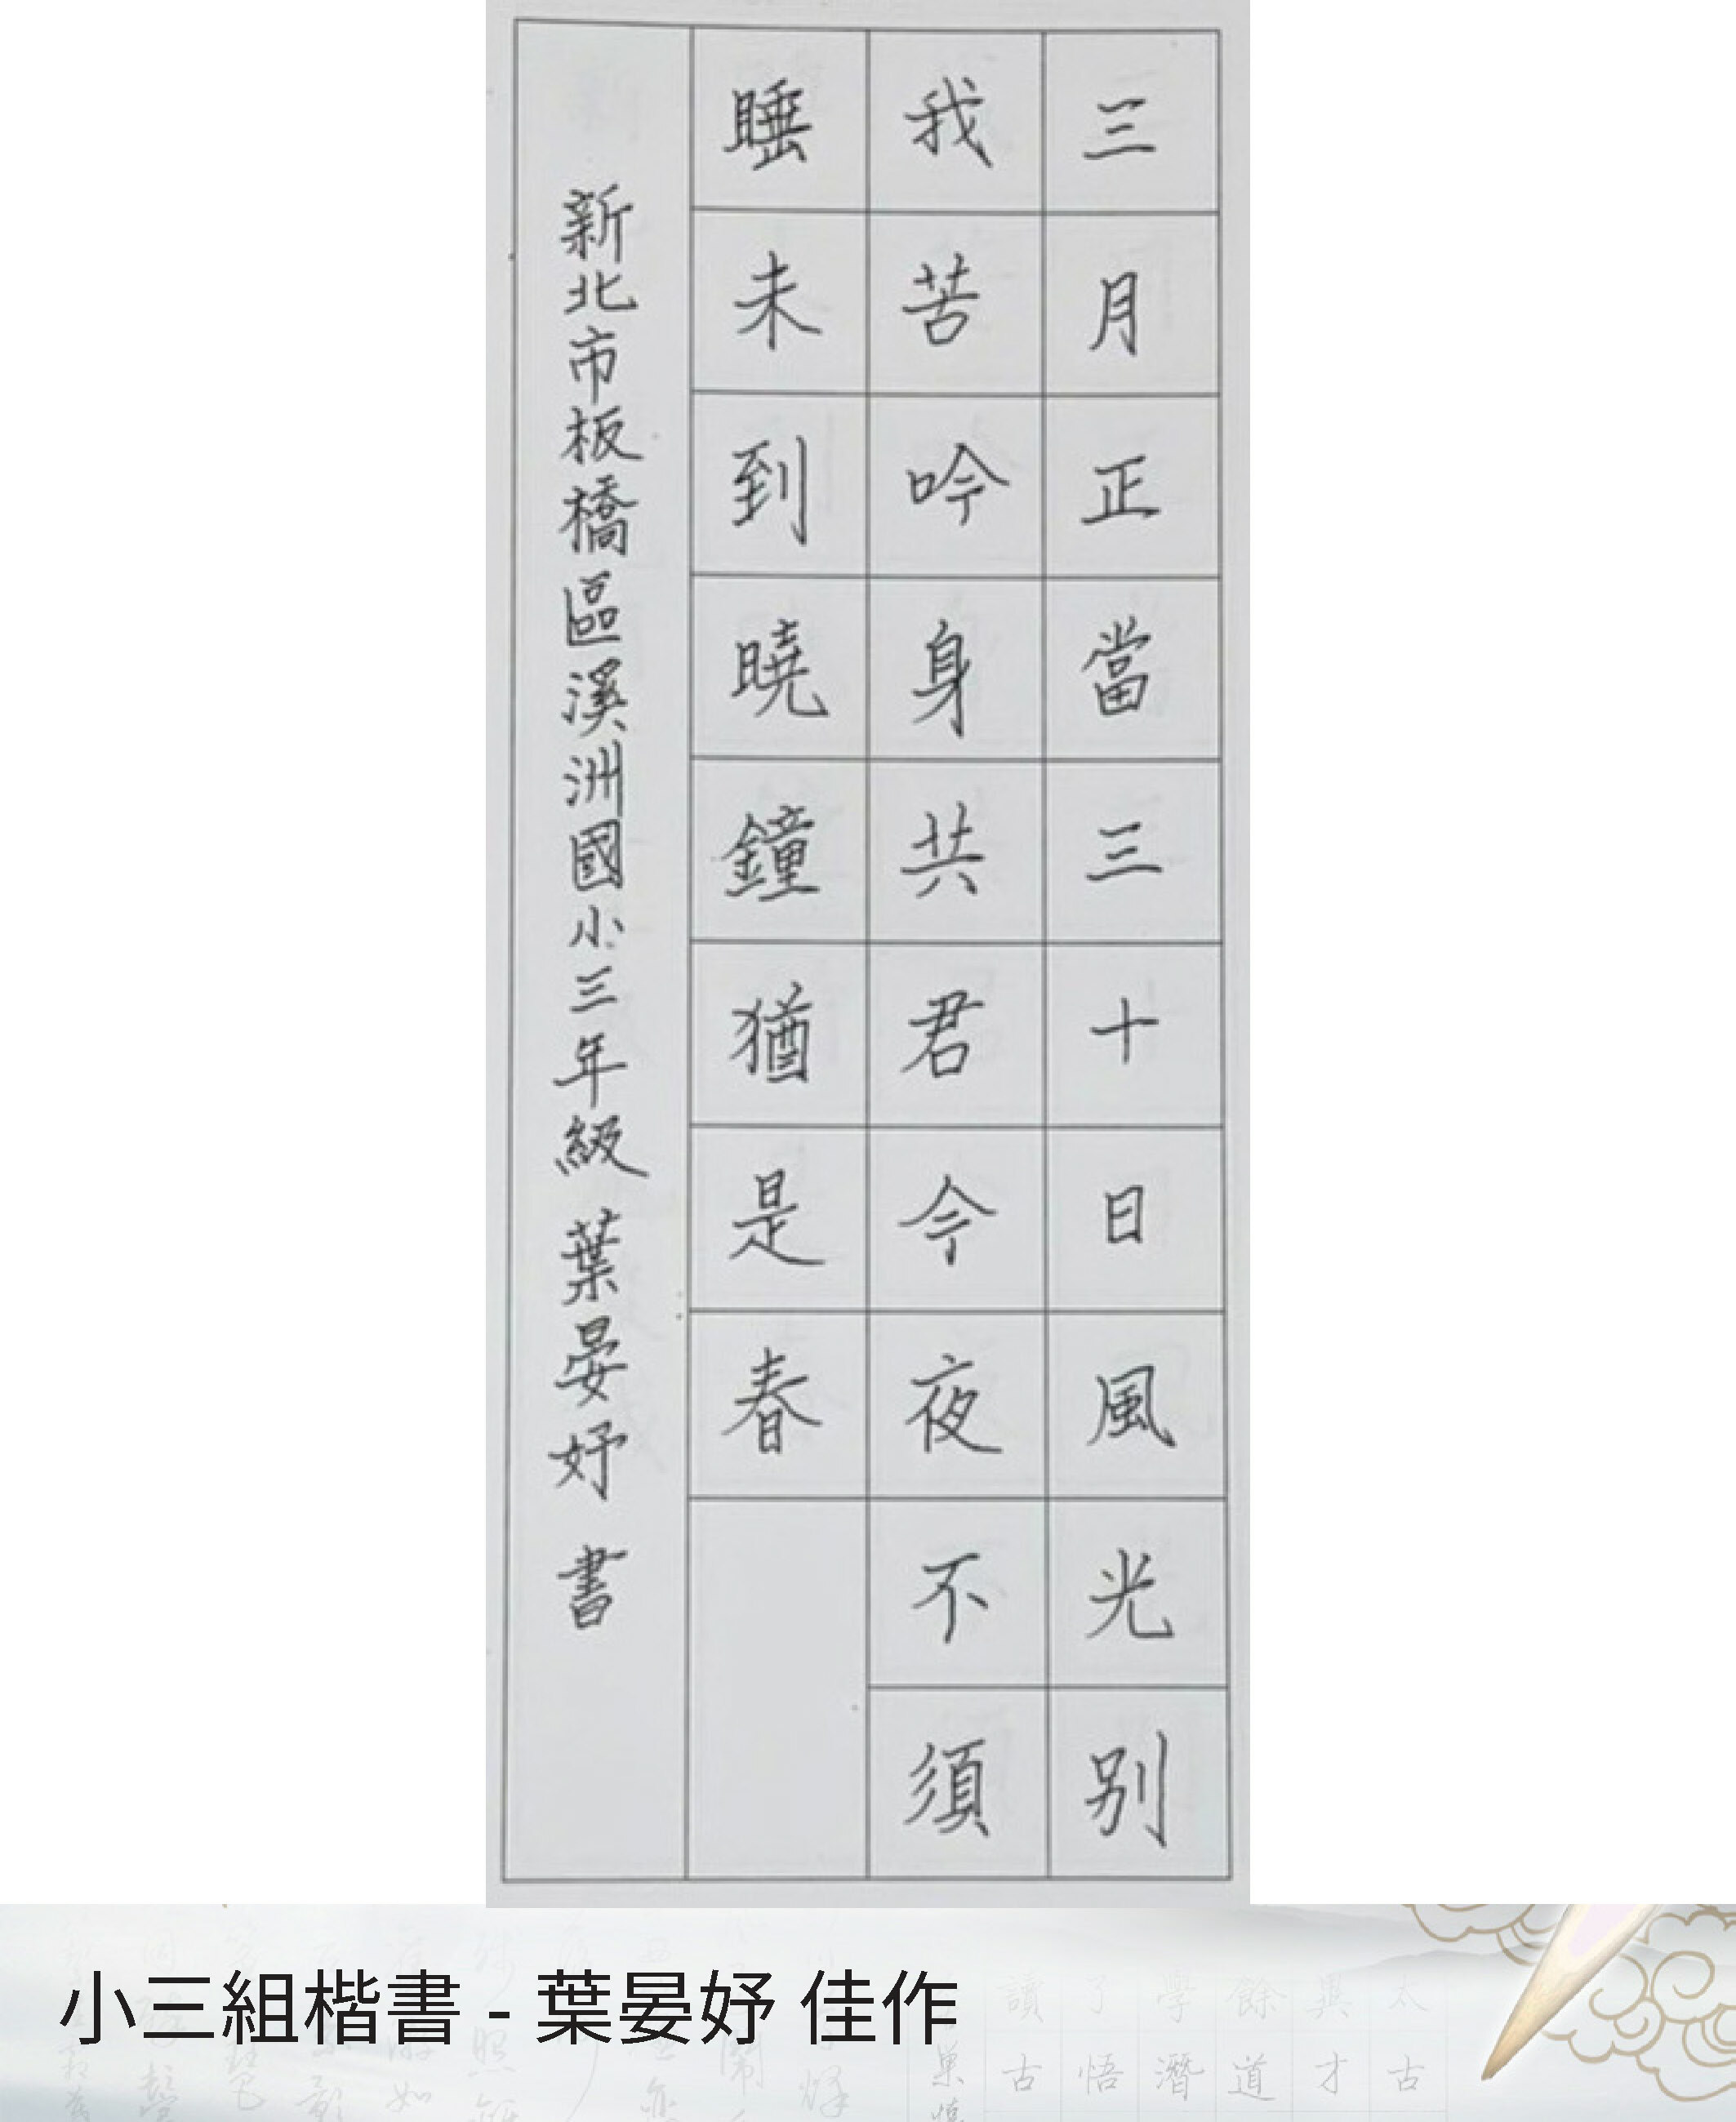 三月正當三十日風光別
我苦吟身共君今夜不須
睡未到曉鐘猶是春
新北市板橋區溪洲國小三年級 葉晏妤 書
小三組楷書 - 葉晏妤 佳作
讀了字餘與太
古悟潛道才古